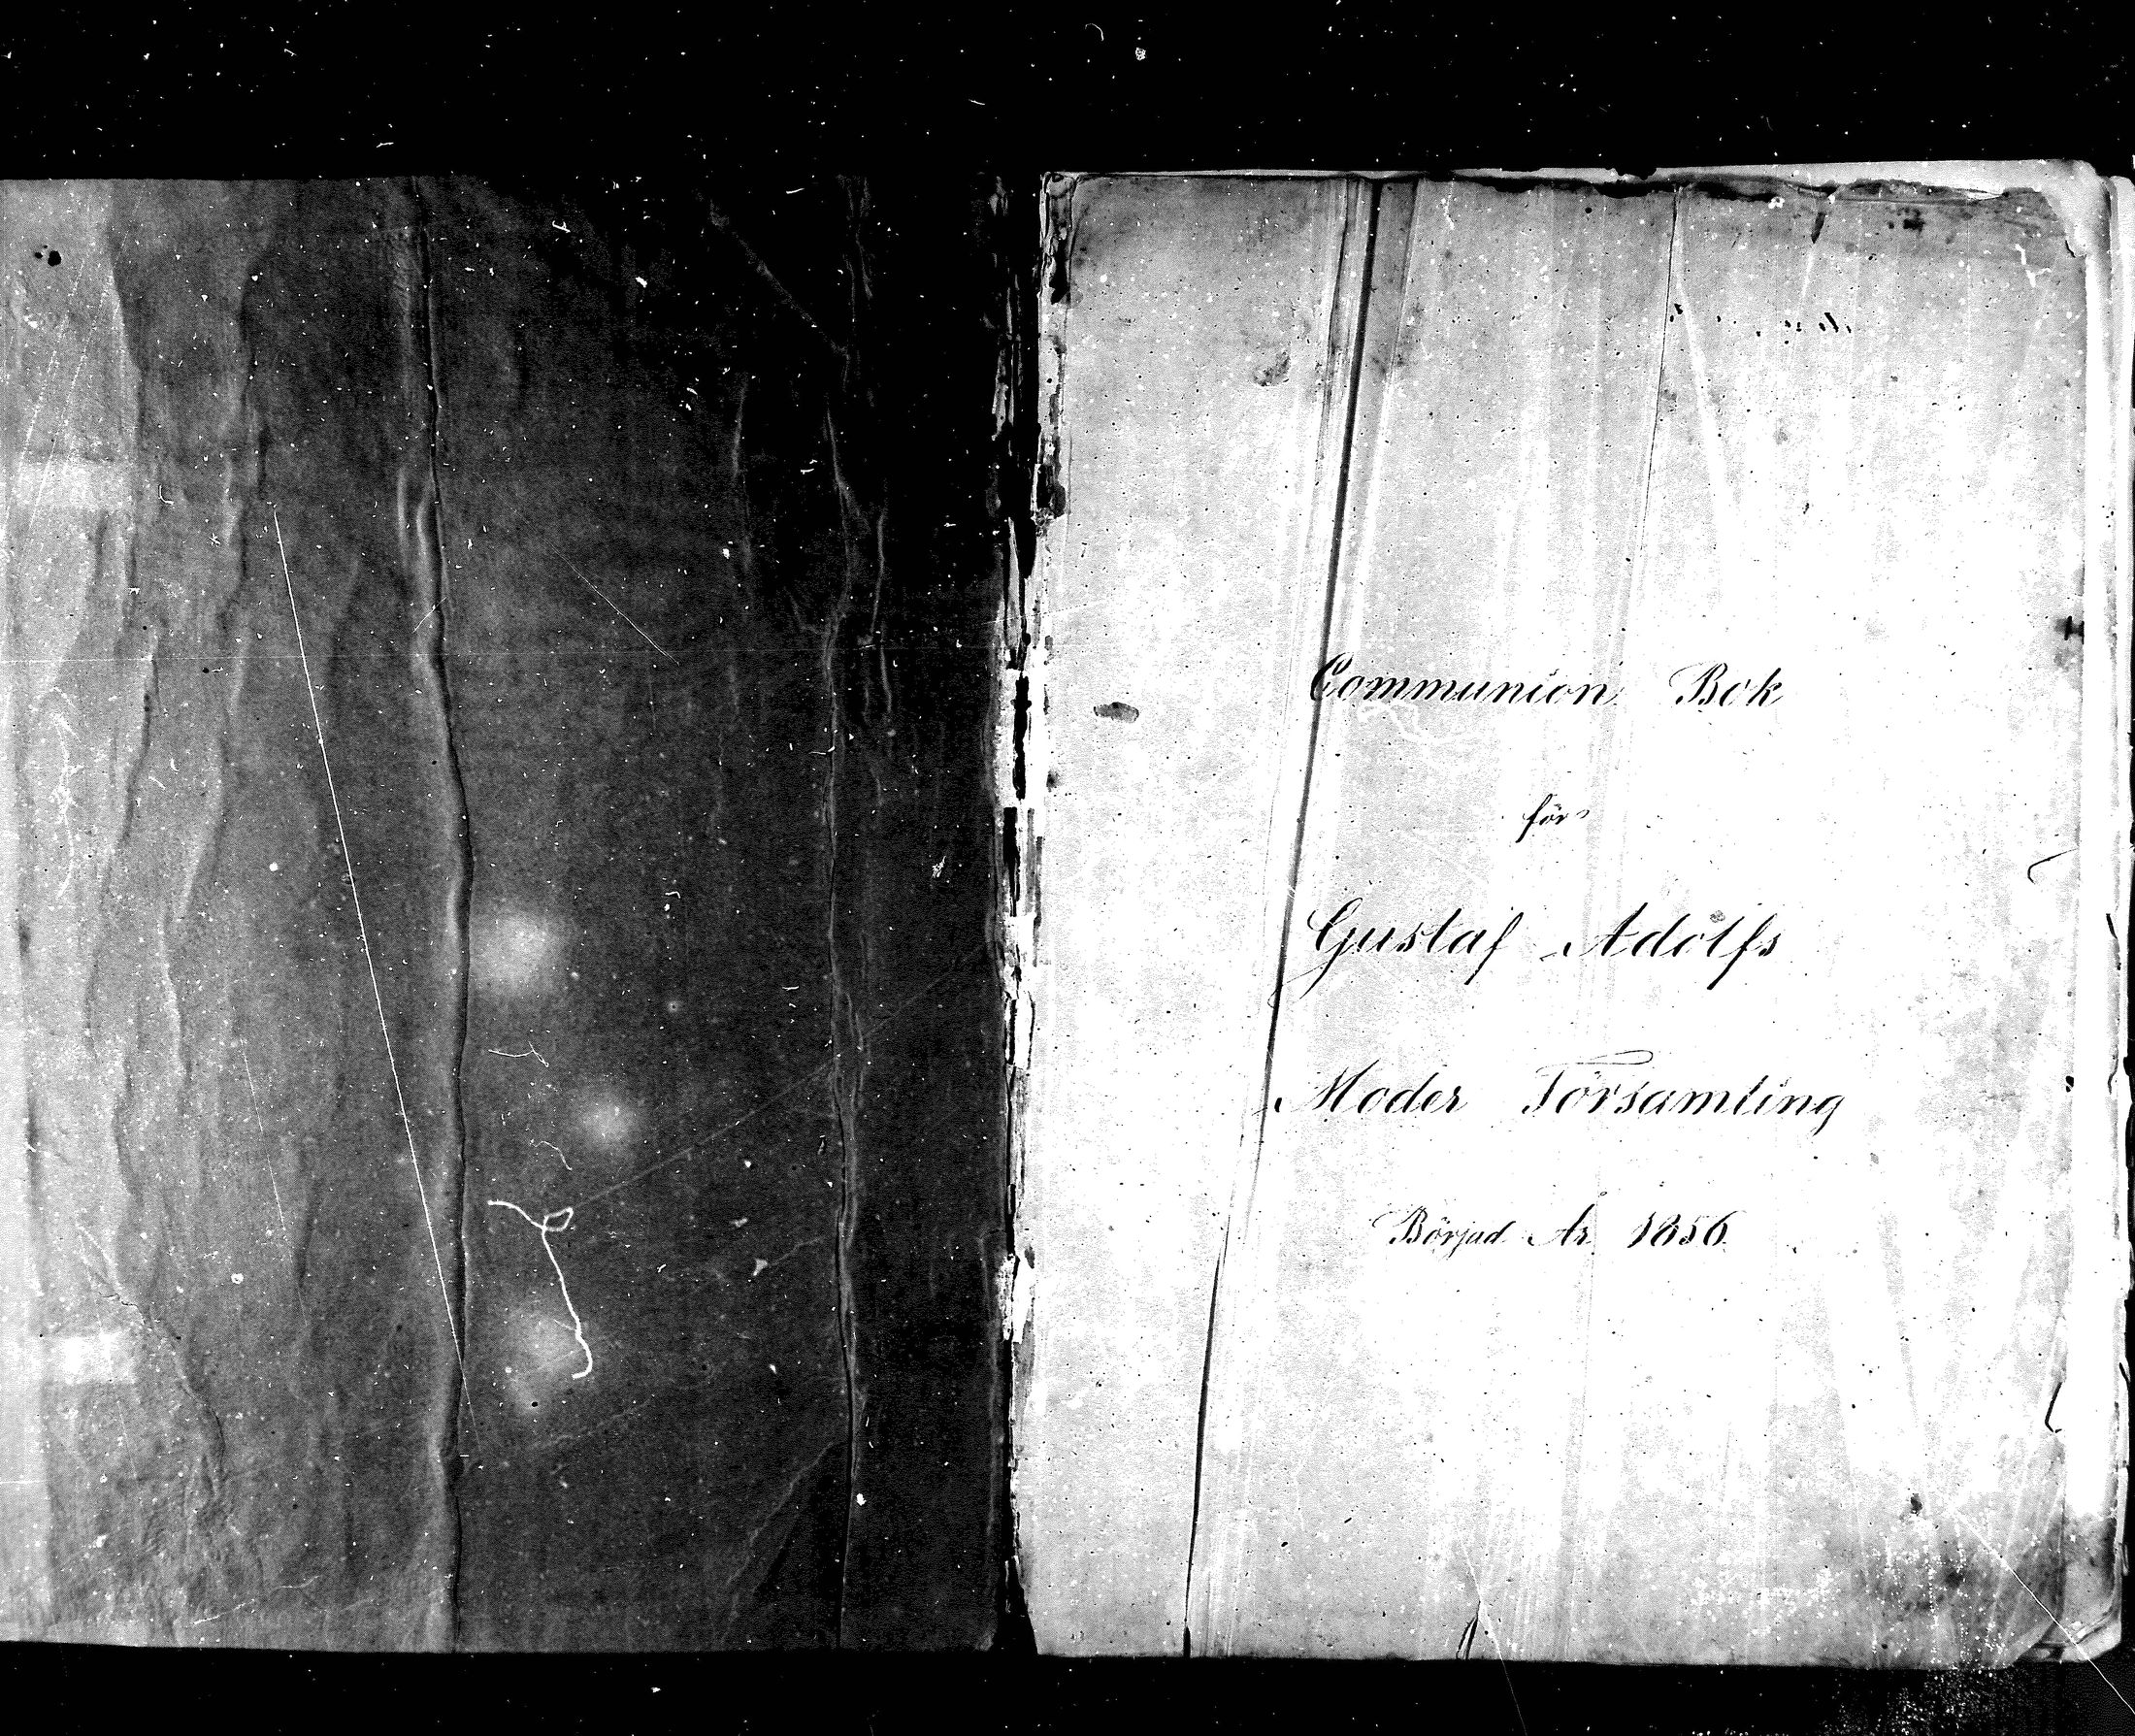 Communion Bok
för
Gustaf Adolfs
Moder Församling
Börjad År 1856